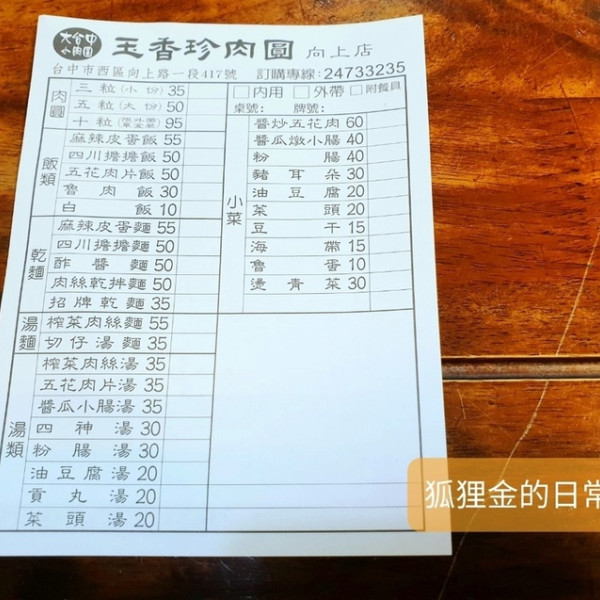 大台中
小肉圓
玉香珍肉圓 向上店
台中市西區向上路一段417號 訂購專線:24733235
肉圓
三粒(小份)35
五粒(大份)50
十粒 95
飯類
麻辣皮蛋飯55
四川擔擔飯50
五花肉片飯50
魯肉飯30
白飯10
乾麵
麻辣皮蛋麵55
四川擔擔麵50
酢醬麵50
肉絲乾拌麵50
招牌乾麵35
湯麵
榨菜肉絲麵55
切仔湯麵35
湯類
榨菜肉絲湯35
五花肉片湯35
醬瓜小腸湯35
四神湯30
粉腸湯30
油豆腐湯20
貢丸湯20
菜頭湯20
□內用 □外帶 □附餐具
桌號: 牌號:
小菜
醬炒五花肉60
醬瓜燉小腸40
粉腸40
豬耳朵30
油豆腐20
菜頭20
豆干15
海帶15
魯蛋10
燙青菜30
狐狸金的日常